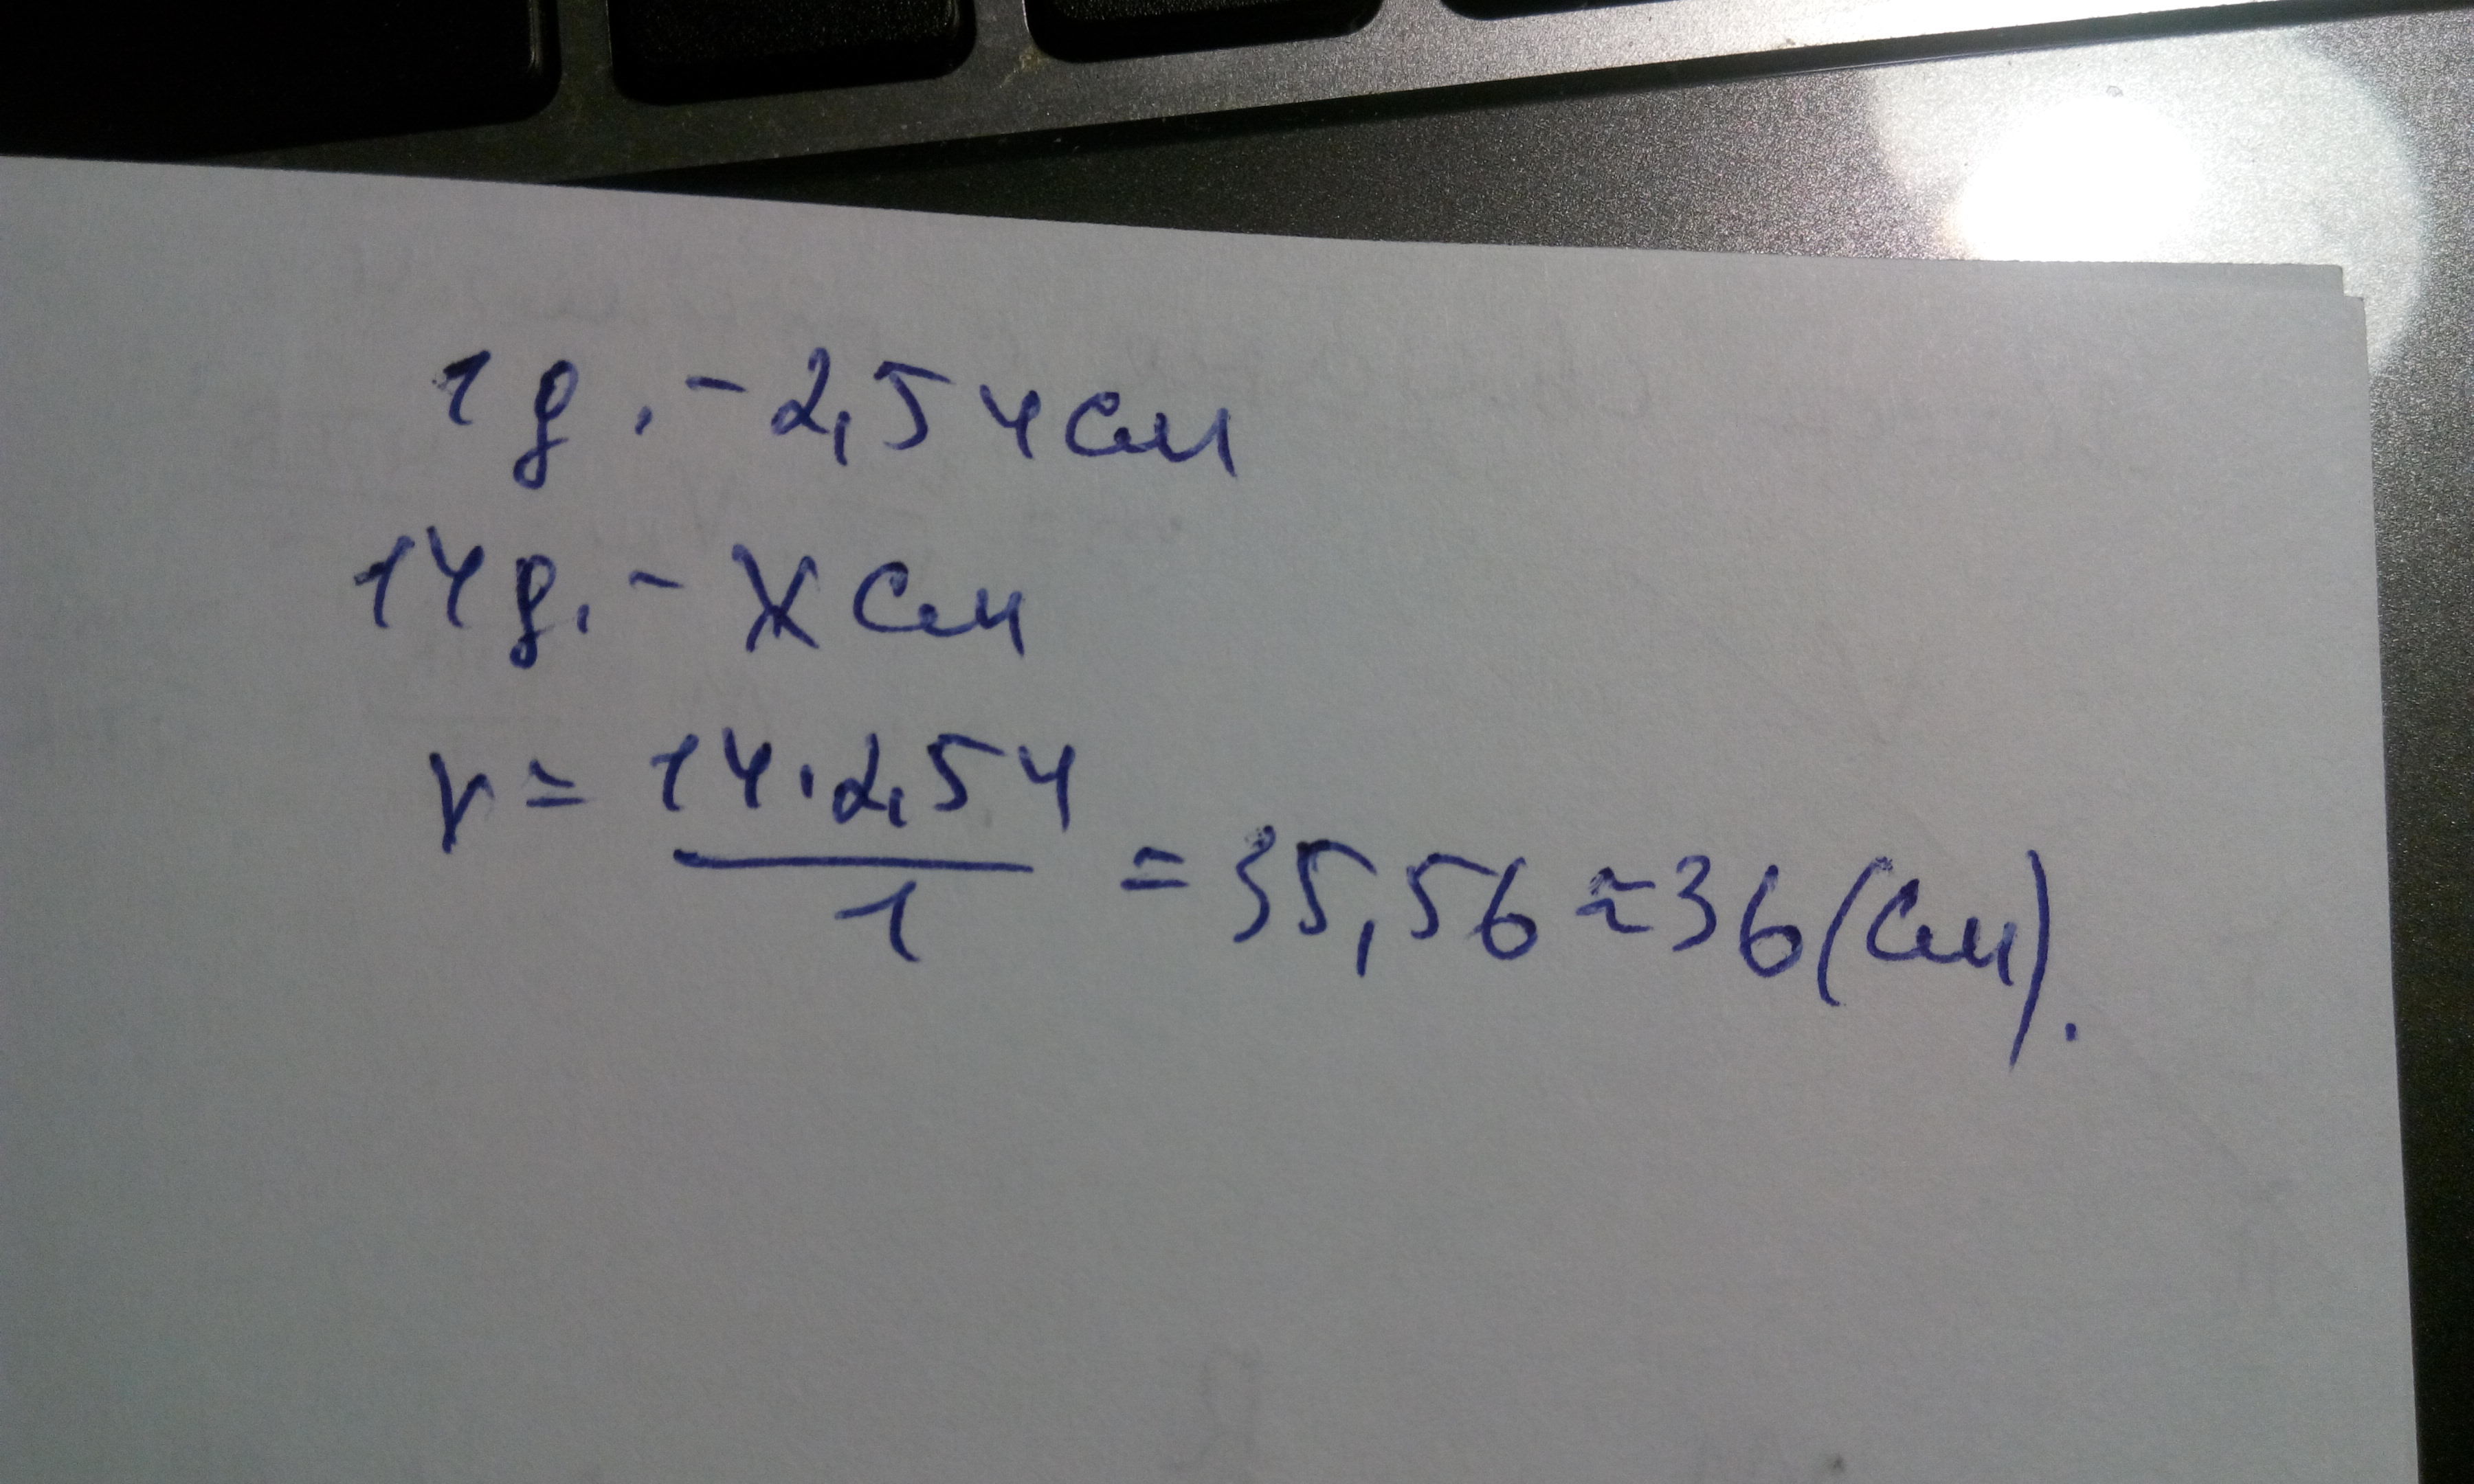 1 д. - 2,54 см
14 д. - х см
х = 14·2,54 / 1 = 35,56 ≈ 36 (см).